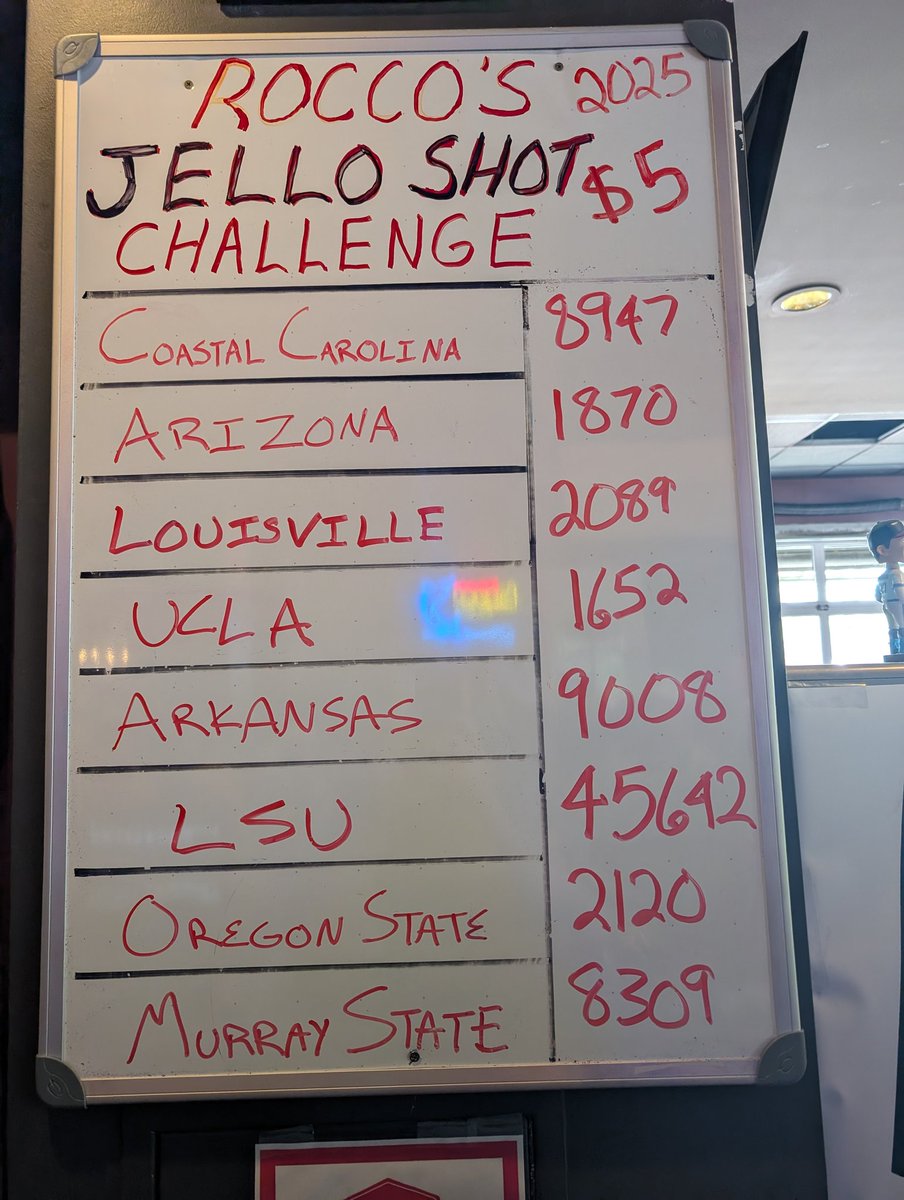 ROCCO'S 2025
JELLO SHOT $5
CHALLENGE
COASTAL CAROLINA 8947
ARIZONA 1870
LOUISVILLE 2089
UCLA 1652
ARKANSAS 9008
LSU 45642
OREGON STATE 2120
MURRAY STATE 8309